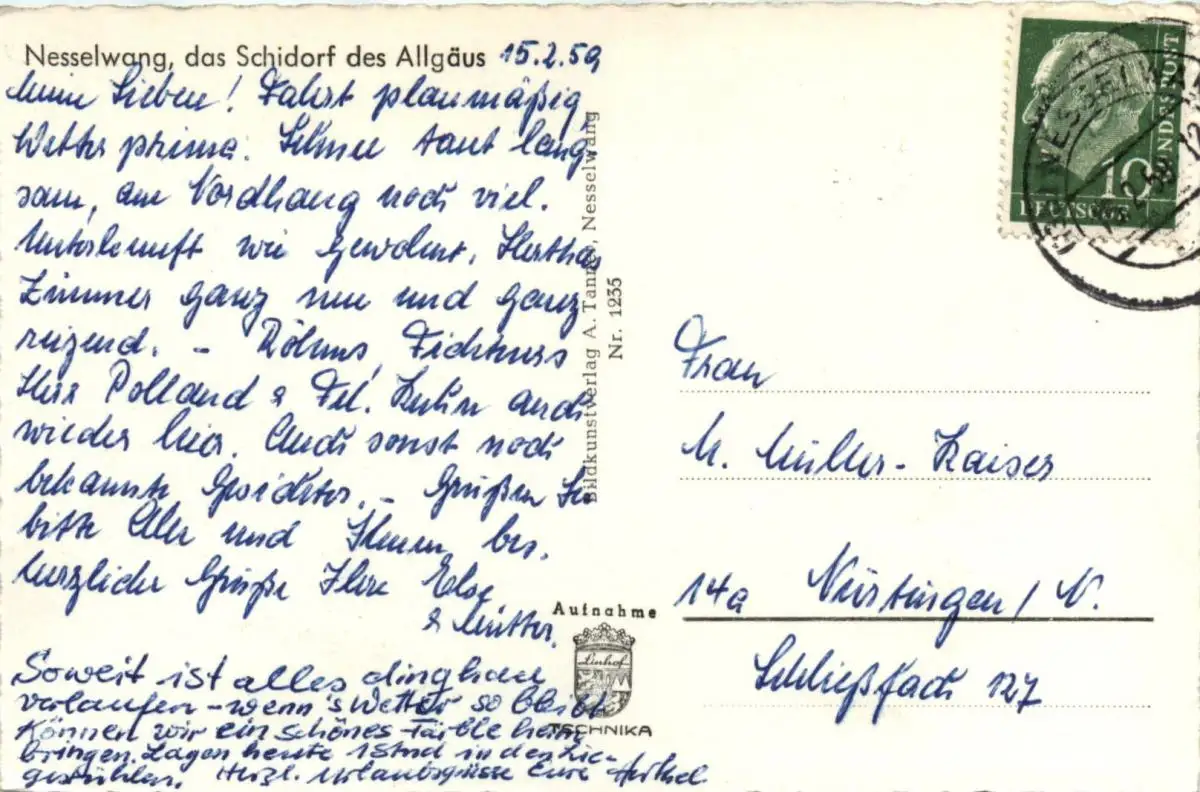 Nesselwang, das Schidorf des Allgäus 15.2.59
Meine Lieben! Fahrt planmäßig,
Wetter prima. Schnee taut lang-
sam, am Nordhang noch viel.
Unterkunft wie gewohnt, Herthas
Zimmer ganz neu und ganz
reizend. – Röhms, Fichtners
Herr Polland & Frl. Kuhn auch
wieder hier. Auch sonst noch
bekannte Gesichter. – Grüßen Sie
bitte Alle und Ihnen bes.
herzliche Grüße Ihre Else
& Mutter.
Soweit ist alles
verlaufen – wenn's Wetter so bleibt
können wir ein schönes Färble heim
bringen. Lagen heute 1 Stnd in den Lie-
gestühlen. Herzl. Urlaubsgrüsse Eure
Bildkunstverlag A. Tanner, Nesselwang
Nr. 1235
Aufnahme
Linhof
TECHNIKA
DEUTSCHE BUNDESPOST
10
NESSELWANG
Frau
M. Müller-Kaiser
14a Nürtingen/N.
Schließfach 127